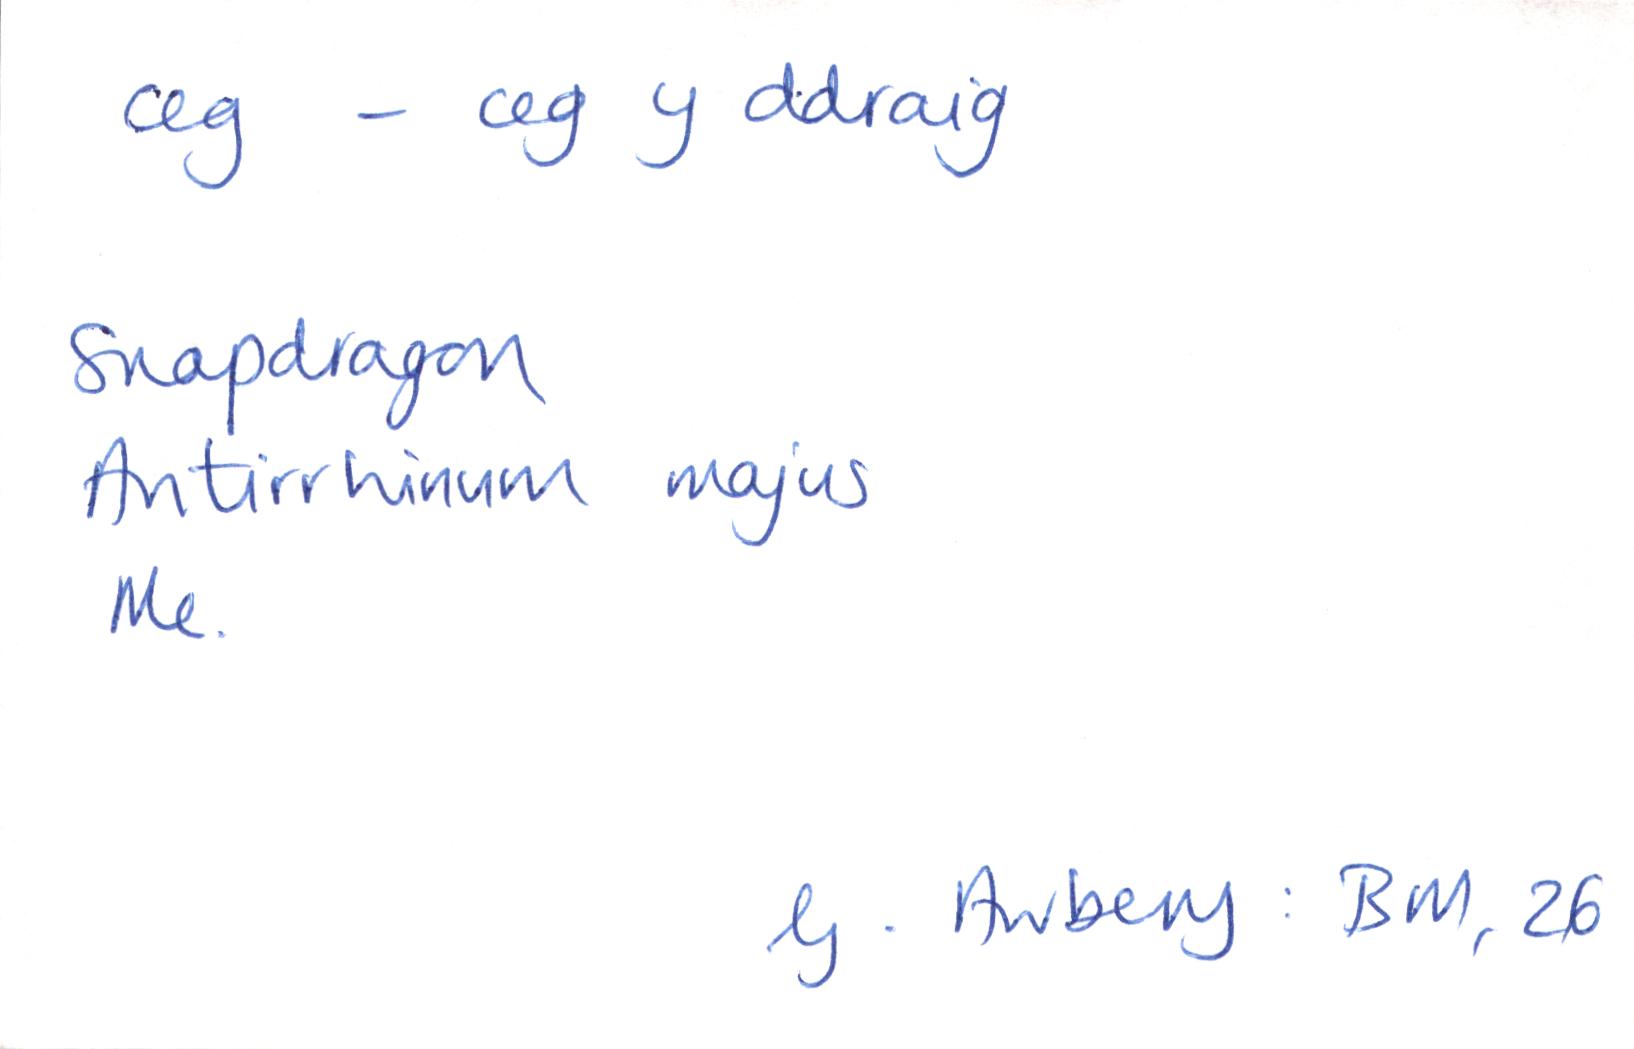 ceg – ceg y ddraig
Snapdragon
Antirrhinum majus
Me.
G. Awbery: BM, 26